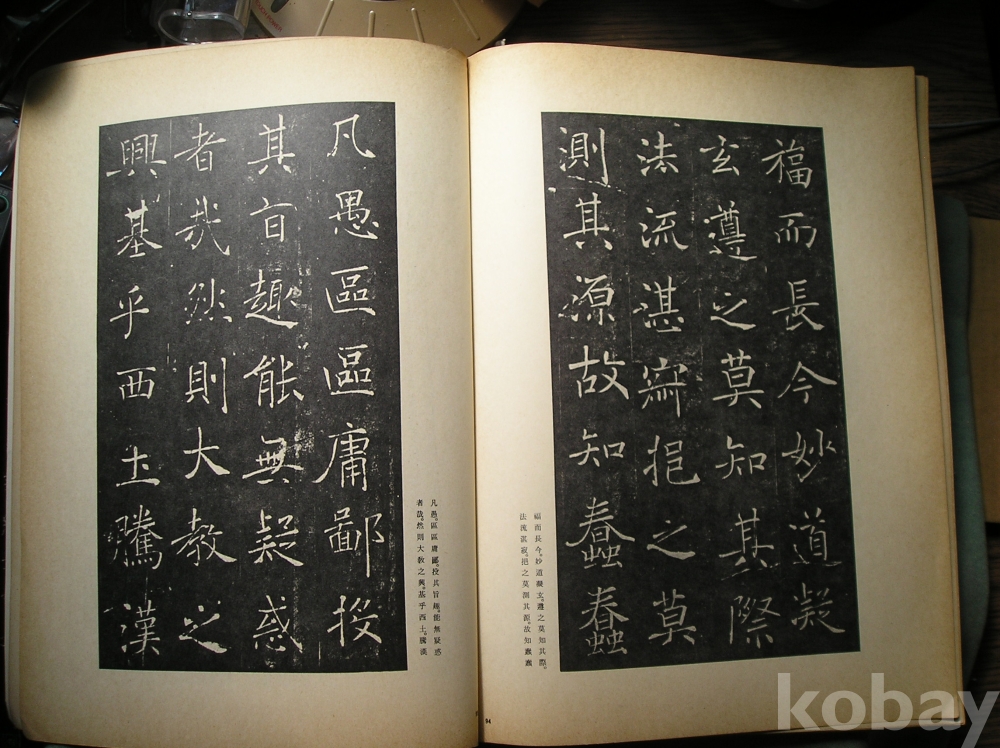 福而長今妙道凝
玄遵之莫知其際
法流湛寂挹之莫
測其源故知蠢蠢
福而長今。妙道凝玄。遵之莫知其際。
法流湛寂。挹之莫測其源。故知蠢蠢
凡愚區區庸鄙投
其旨趣能無疑惑
者哉然則大教之
興基乎西土騰漢
凡愚。區區庸鄙。投其旨趣。能無疑惑
者哉。然則大教之興。基乎西土。騰漢
kobay